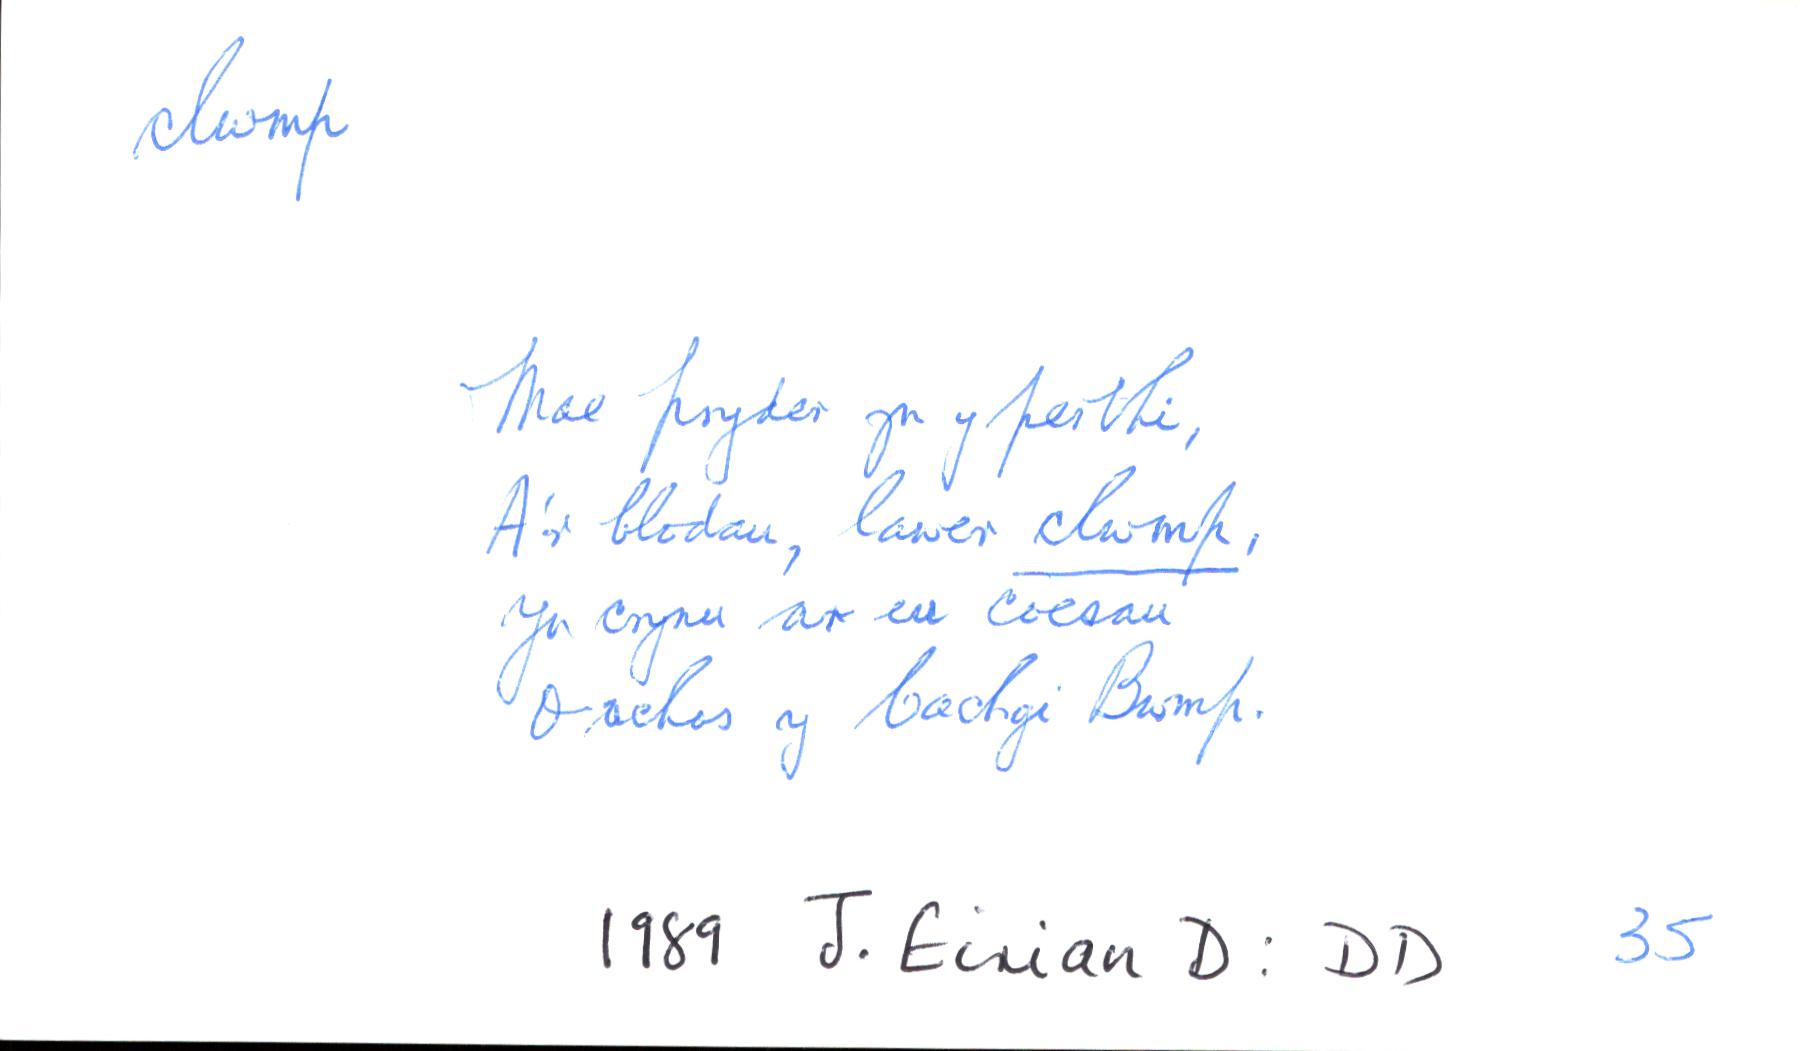 clwmp
Mae pryder yn y perthi,
A'r blodau, lawer clwmp,
Yn crynu ar eu coesau
O achos y bachgi Bwmp.
1989 J. Eirian D: DD 35